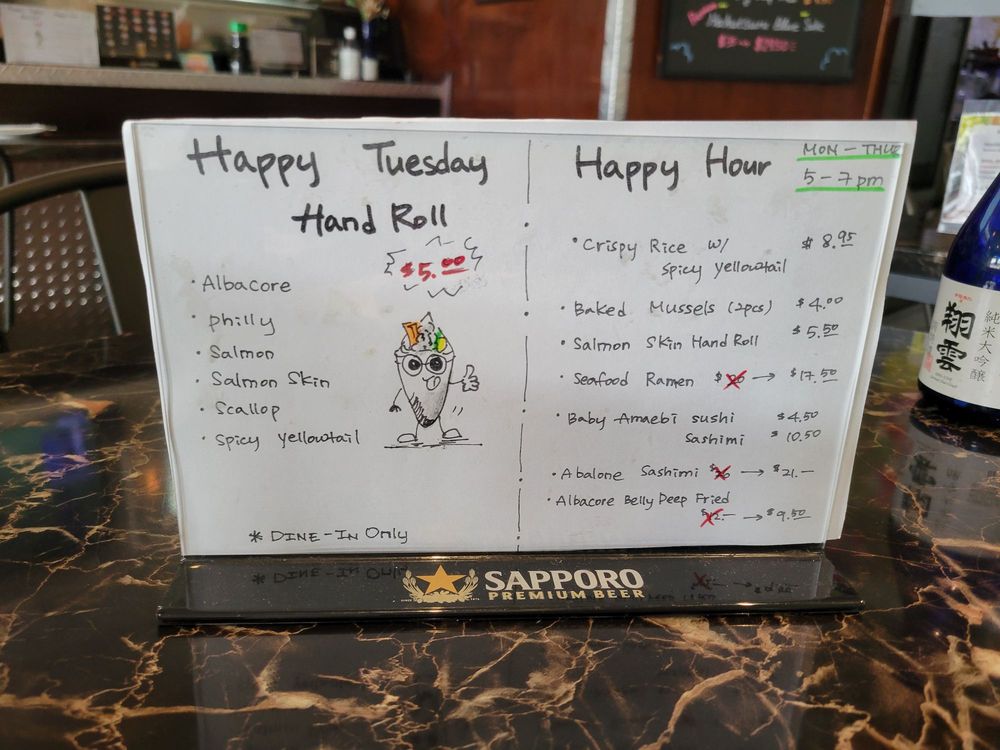 Happy Tuesday
Hand Roll
$5.00
· Albacore
· philly
· Salmon
· Salmon Skin
· Scallop
· Spicy Yellowtail
* DINE-IN Only
Happy Hour
MON - THUR
5 - 7 pm
· Crispy Rice w/ $8.95
Spicy yellowtail
· Baked Mussels (2pcs) $4.00
· Salmon Skin Hand Roll $5.50
· Seafood Ramen $20 → $17.50
· Baby Amaebi sushi $4.50
Sashimi $10.50
· Abalone Sashimi → $21.—
· Albacore Belly Deep Fried
$12.— → $9.50
SAPPORO
PREMIUM BEER
翔雲
純米大吟醸